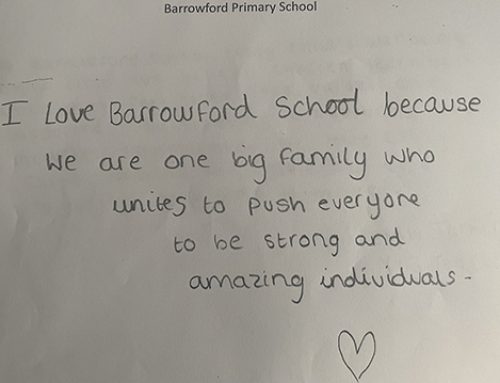 Barrowford Primary School
I Love Barrowford School because
we are one big family who
unites to push everyone
to be strong and
amazing individuals.